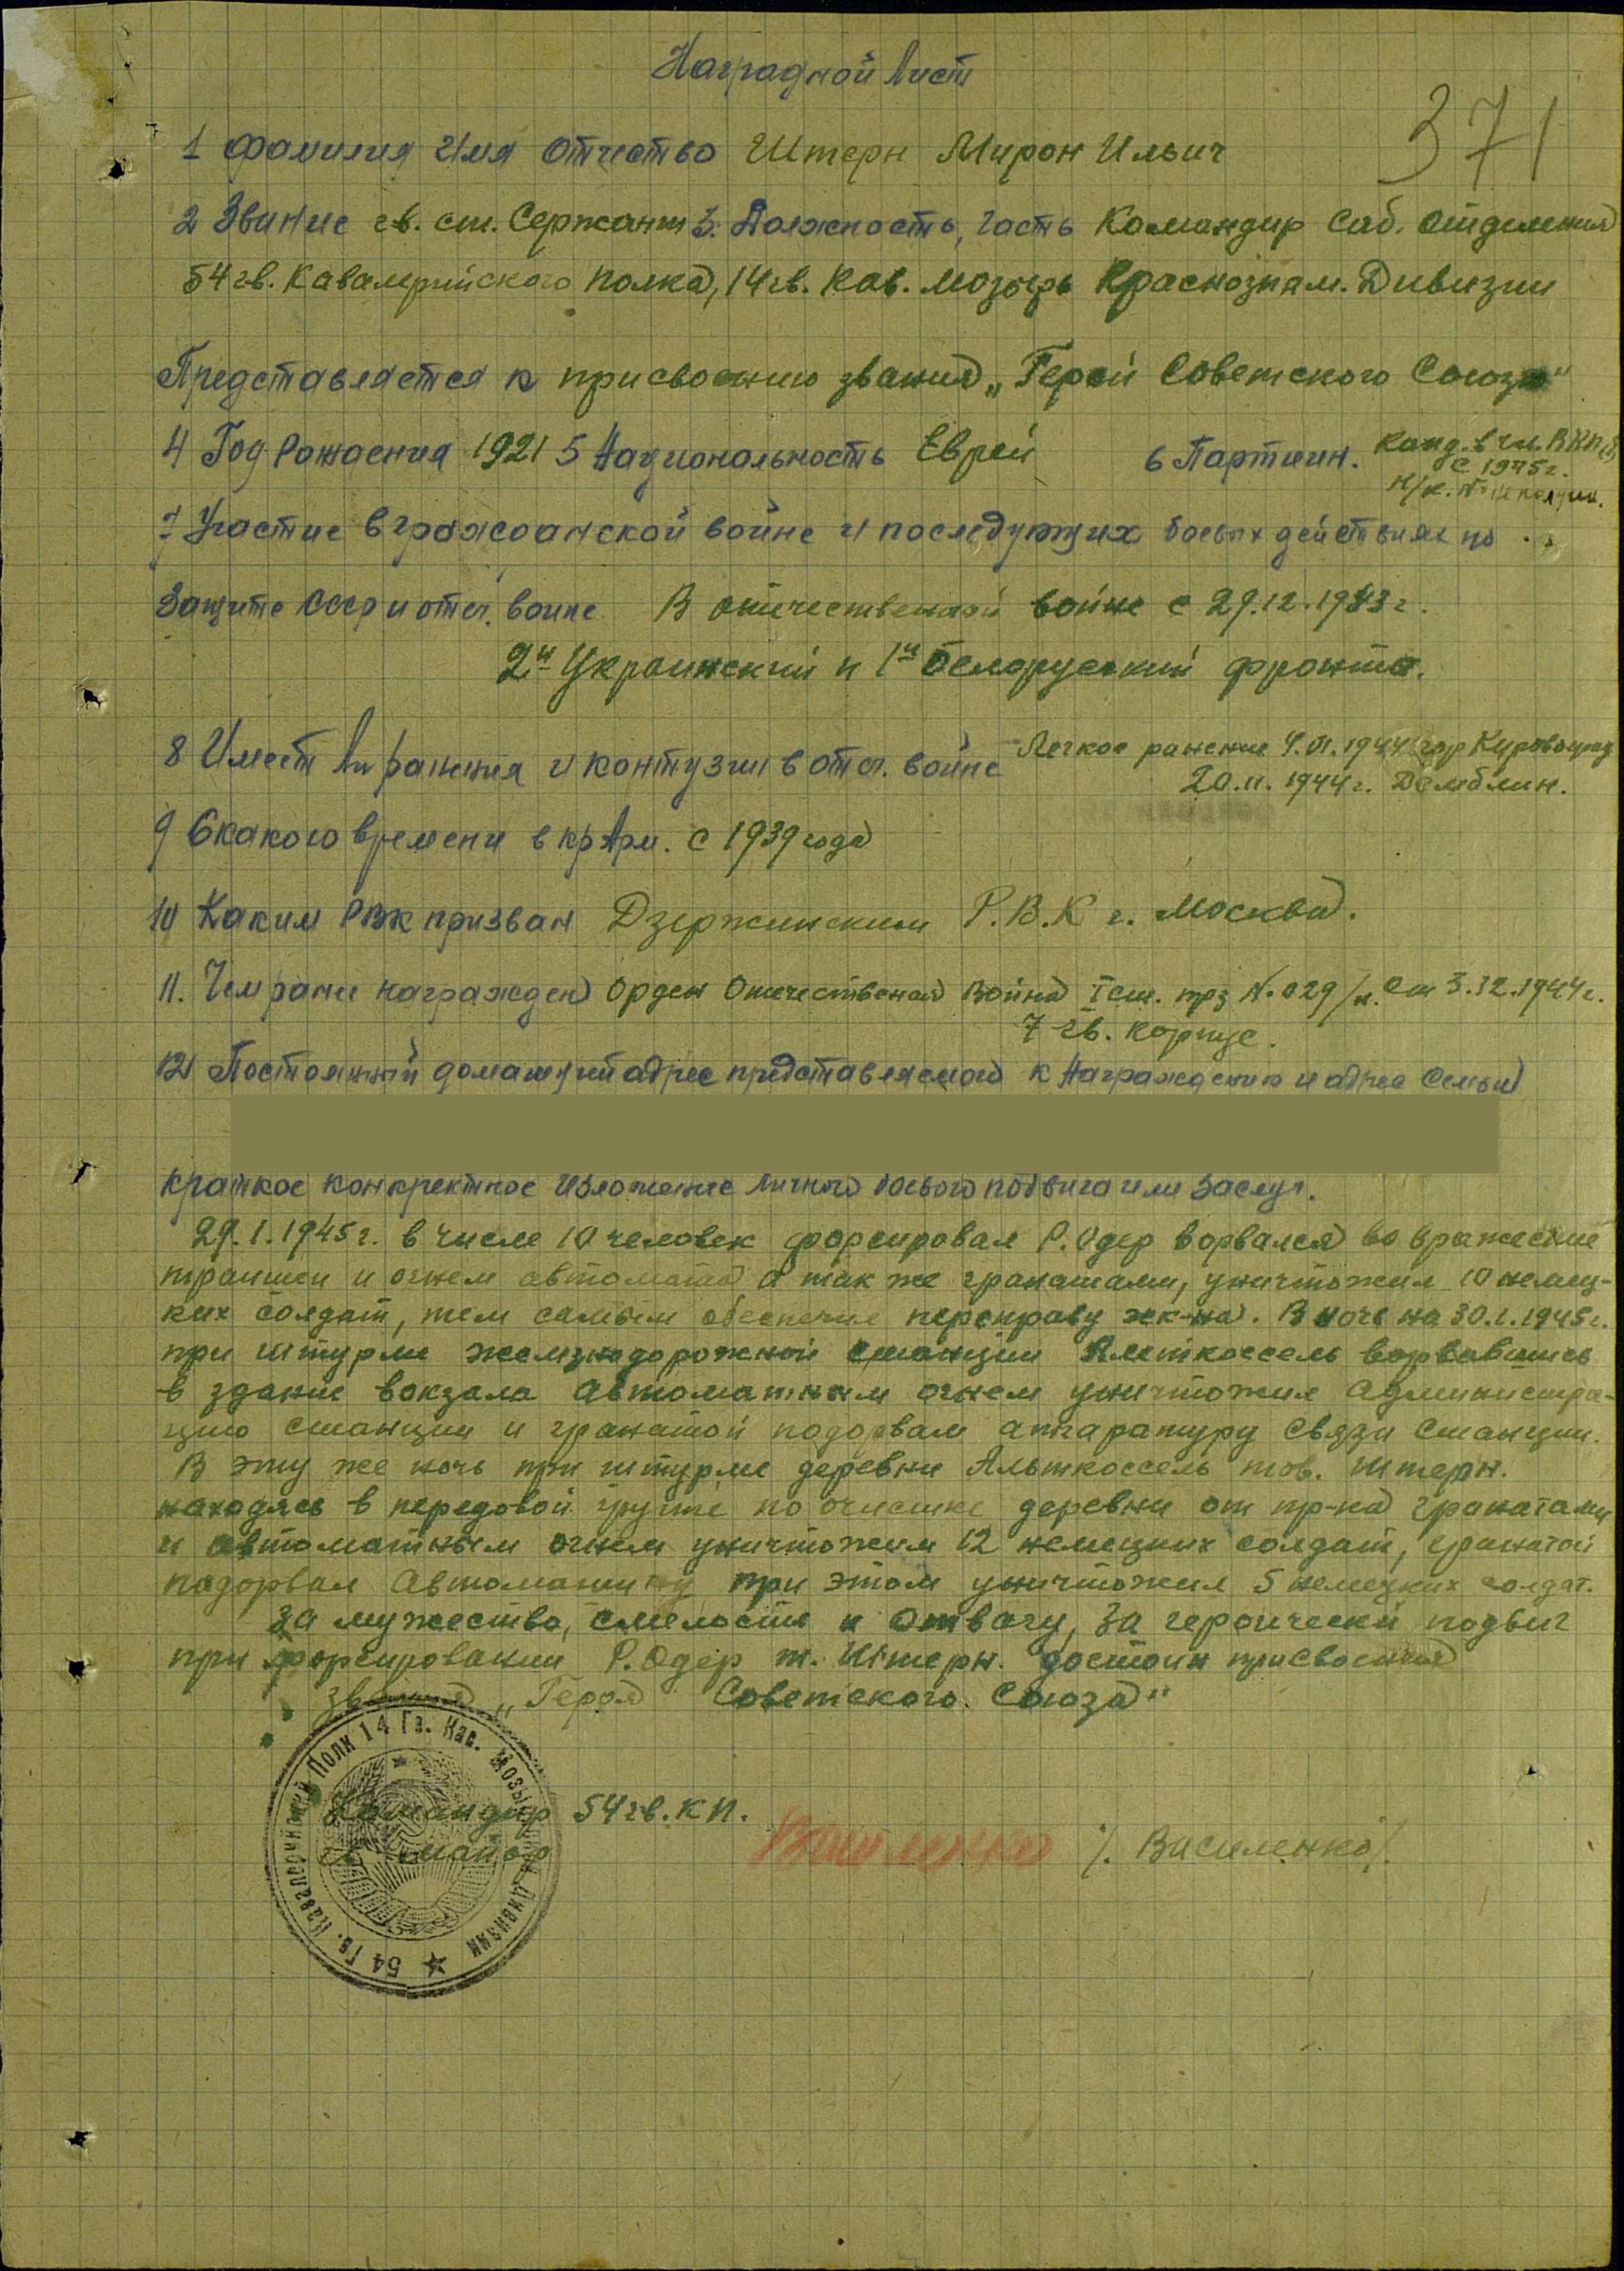 Наградной Лист
371
1 Фамилия Имя Отчество Штерн Мирон Ильич
2 Звание гв. ст. Сержант 3. Должность, часть Командир Саб. отделения
54 гв. Кавалерийского полка, 14 гв. Кав. Мозырь Краснознам. Дивизии
Представляется к присвоению звания „Герой Советского Союза"
4 Год Рождения 1921 5 Национальность Еврей 6 Партийн. Канд. в чл. ВКП(б)
с 1945г.
Н/к. №
7 Участие в гражданской войне и последующих боевых действиях по
Защите СССР и отеч. войне В отечественной войне с 29.12.1943 г.
2й Украинский и 1й Белоруский фронт.
8 Имеет ли ранения и контузии в отеч. войне Легкое ранение 4.VI.1944 гор Кировоград
20.11.1944г. Демблин.
9 С какого времени в кр Арм. с 1939 года
10 Каким РВК призван Дзержинским Р.В.К г. Москва.
11. Чем ранее награжден Орден Отечественная Война I ст. прз N. 029/н. от 3.12.1944г.
7 гв. корпус.
12 Постоянный домашний адрес представляемого к Награждению и адрес Семьи
краткое конкретное Изложение личного боевого подвига или Заслуг.
29.1.1945г. в числе 10 человек форсировал Р. Одер ворвался во вражеские
траншеи и огнем автомата а так же гранатами, уничтожил 10 немец-
ких солдат, тем самым обеспечил переправу эск-на. В ночь на 30.1.1945г.
при штурме железнодорожной станции Альткоссель ворвавшись
в здание вокзала Автоматным огнем уничтожил Администра-
цию станции и гранатой подорвал аппаратуру Связи Станции.
В эту же ночь при штурме деревни Альткоссель тов. Штерн.
находясь в передовой группе по очистке деревни от пр-ка гранатами
и автоматным огнем уничтожил 12 немецких солдат, гранатой
подорвал Автомашину при этом уничтожил 5 немецких солдат.
За мужество, смелость и отвагу, за героический подвиг
при форсировании Р. Одер т. Штерн. достоин присвоения
звания „Героя Советского Союза"
Командир 54 гв. КП.
гв. майор /. Василенко/.
54 Гв. Кавалерийский Полк 14 Гв. Кав. Мозыр Дивизии